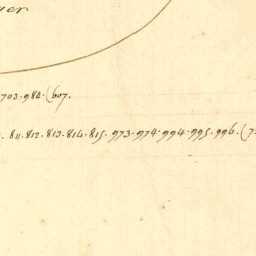 703. 984. (607.
. 811. 812. 813. 814. 815. 973. 974. 994. 995. 996. (7